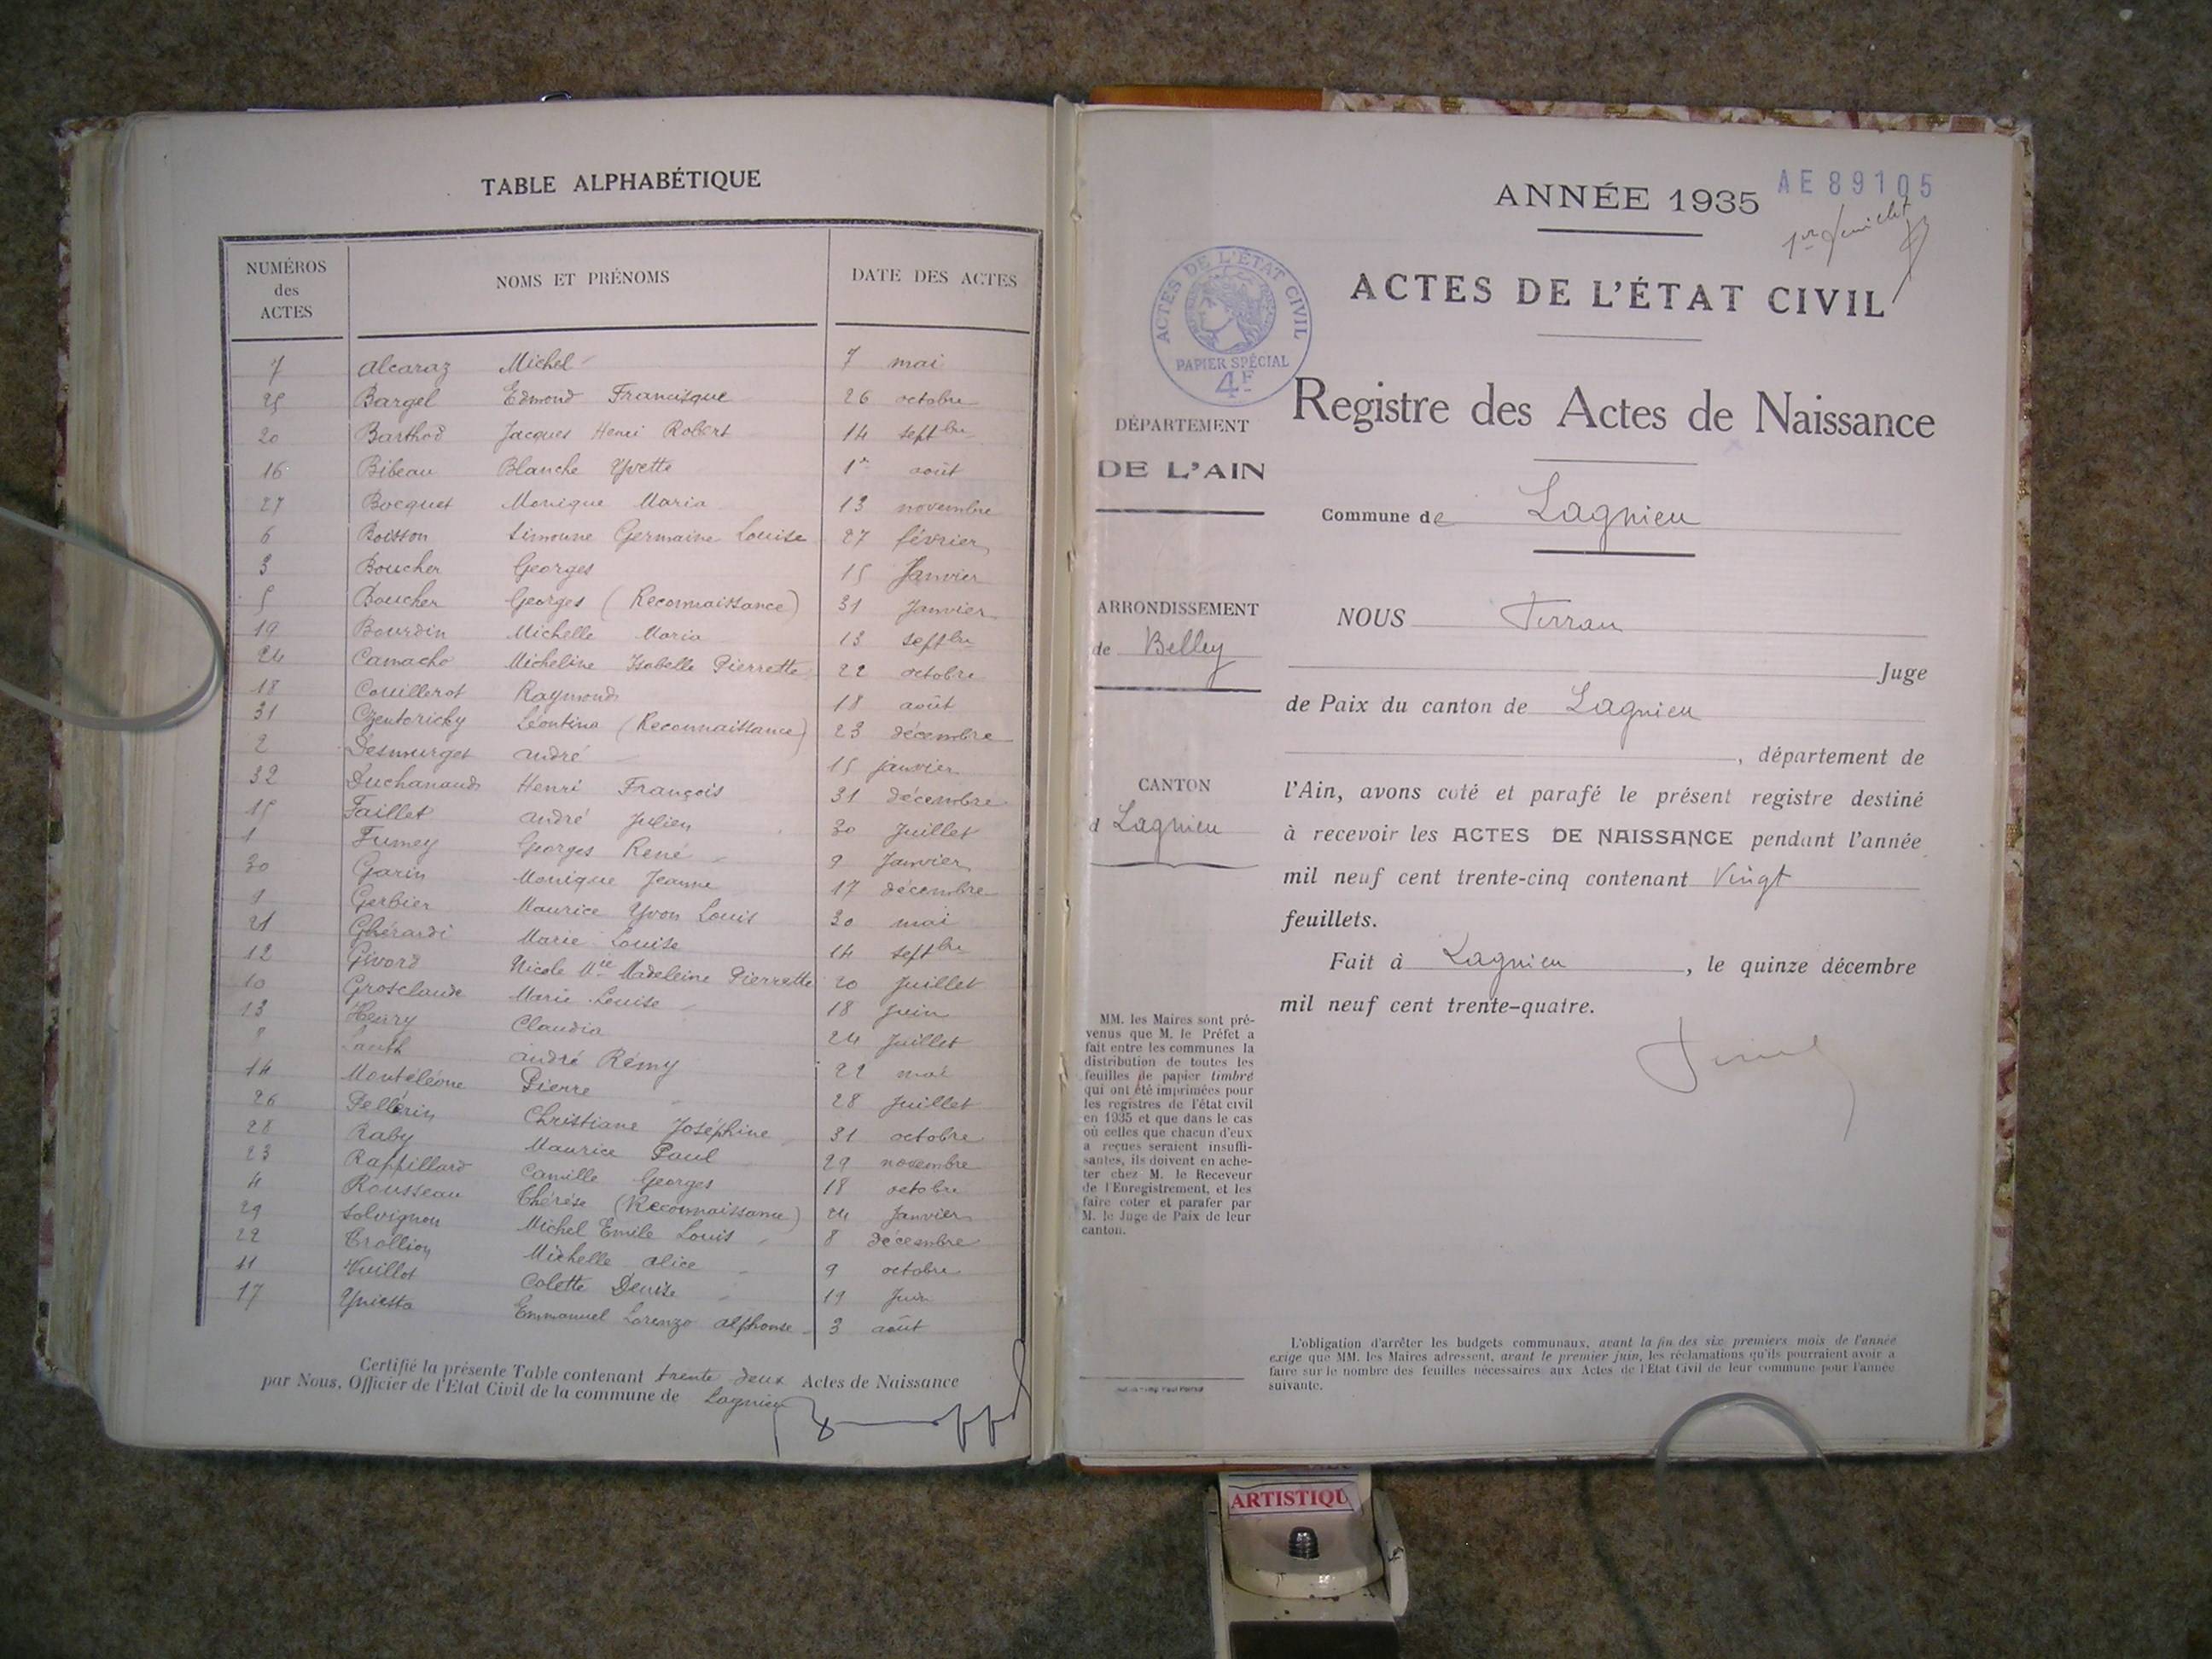 TABLE ALPHABÉTIQUE
NUMÉROS des ACTES NOMS ET PRÉNOMS DATE DES ACTES
7 Alcaraz Michel 7 mai
25 Bargel Edmond Francisque 26 octobre
20 Barthod Jacques Henri Robert 14 septbre
16 Bibeau Blanche Yvette 1er août
27 Bocquet Monique Maria 13 novembre
6 Boisson Simonne Germaine Louise 27 février
3 Boucher Georges 15 Janvier
5 Boucher Georges (Reconnaissance) 31 Janvier
19 Bourdin Michelle Maria 13 septbre
24 Camacho Micheline Isabelle Pierrette 22 octobre
18 Couillerot Raymond 18 août
31 Léontina (Reconnaissance) 23 décembre
2 Desmurget André 15 janvier
32 Duchanaud Henri François 31 décembre
15 Faillet André Julien 30 Juillet
1 Fumey Georges René 9 Janvier
30 Garin Monique Jeanne 17 décembre
9 Gerbier Maurice Yvon Louis 30 mai
21 Ghérardi Marie Louise 14 septbre
12 Givord Nicole Mie Madeleine Pierrette 20 Juillet
10 Grosclaude Marie Louise 18 Juin
13 Henry Claudia 24 Juillet
André Rémy 22 mai
14 Montéléone Pierre 28 Juillet
26 Pellerin Christiane Joséphine 31 octobre
28 Raby Maurice Paul 29 novembre
23 Raffillard Camille Georges 18 octobre
4 Rousseau Thérèse (Reconnaissance) 24 Janvier
29 Solvignon Michel Emile Louis 8 décembre
22 Trollion Michelle Alice 9 octobre
11 Vuillot Colette Denise 19 Juin
17 Yniesta Emmanuel Lorenzo Alphonse 3 août
Certifié la présente Table contenant trente deux Actes de Naissance
par Nous, Officier de l'Etat Civil de la commune de Lagnieu
ANNÉE 1935 AE89105
1er feuillet
ACTES DE L'ÉTAT CIVIL
ACTES DE L'ÉTAT CIVIL
PAPIER SPÉCIAL
4F
Registre des Actes de Naissance
DÉPARTEMENT
DE L'AIN
Commune de Lagnieu
ARRONDISSEMENT
de Belley
NOUS Ferran
Juge
de Paix du canton de Lagnieu
, département de
CANTON
d Lagnieu
l'Ain, avons coté et parafé le présent registre destiné
à recevoir les ACTES DE NAISSANCE pendant l'année
mil neuf cent trente-cinq contenant Vingt
feuillets.
Fait à Lagnieu, le quinze décembre
mil neuf cent trente-quatre.
MM. les Maires sont pré-
venus que M. le Préfet a
fait entre les communes la
distribution de toutes les
feuilles de papier timbré
qui ont été imprimées pour
les registres de l'état civil
en 1935 et que dans le cas
où celles que chacun d'eux
a reçues seraient insuffi-
santes, ils doivent en ache-
ter chez M. le Receveur
de l'Enregistrement, et les
faire coter et parafer par
M. le Juge de Paix de leur
canton.
L'obligation d'arrêter les budgets communaux, avant la fin des six premiers mois de l'année
exige que MM. les Maires adressent, avant le premier juin, les réclamations qu'ils pourraient avoir à
faire sur le nombre des feuilles nécessaires aux Actes de l'Etat Civil de leur commune pour l'année
suivante.
ARTISTIQU